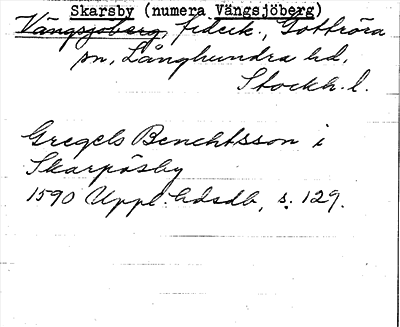 Skarsby (numera Vängsjöberg)
Vängsjöberg, fideik., Gottröra
sn, Långhundra hd,
Stockh. l.
Gregels Benchtsson i
Skarpåsby
1590 Uppl. hdsdb, s. 129.